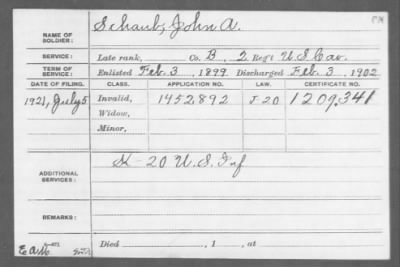 NAME OF SOLDIER: Schaub, John A.
SERVICE: Late rank, Co. B, 2 Reg't U.S. Cav.
TERM OF SERVICE: Enlisted Feb. 3, 1899 Discharged Feb. 3, 1902
DATE OF FILING. CLASS. APPLICATION NO. LAW. CERTIFICATE NO.
1921, July 5 Invalid, 1452892 J 20 1209,341
Widow,
Minor,
ADDITIONAL SERVICES: K - 20 U.S. Inf
REMARKS:
Died , 1 , at